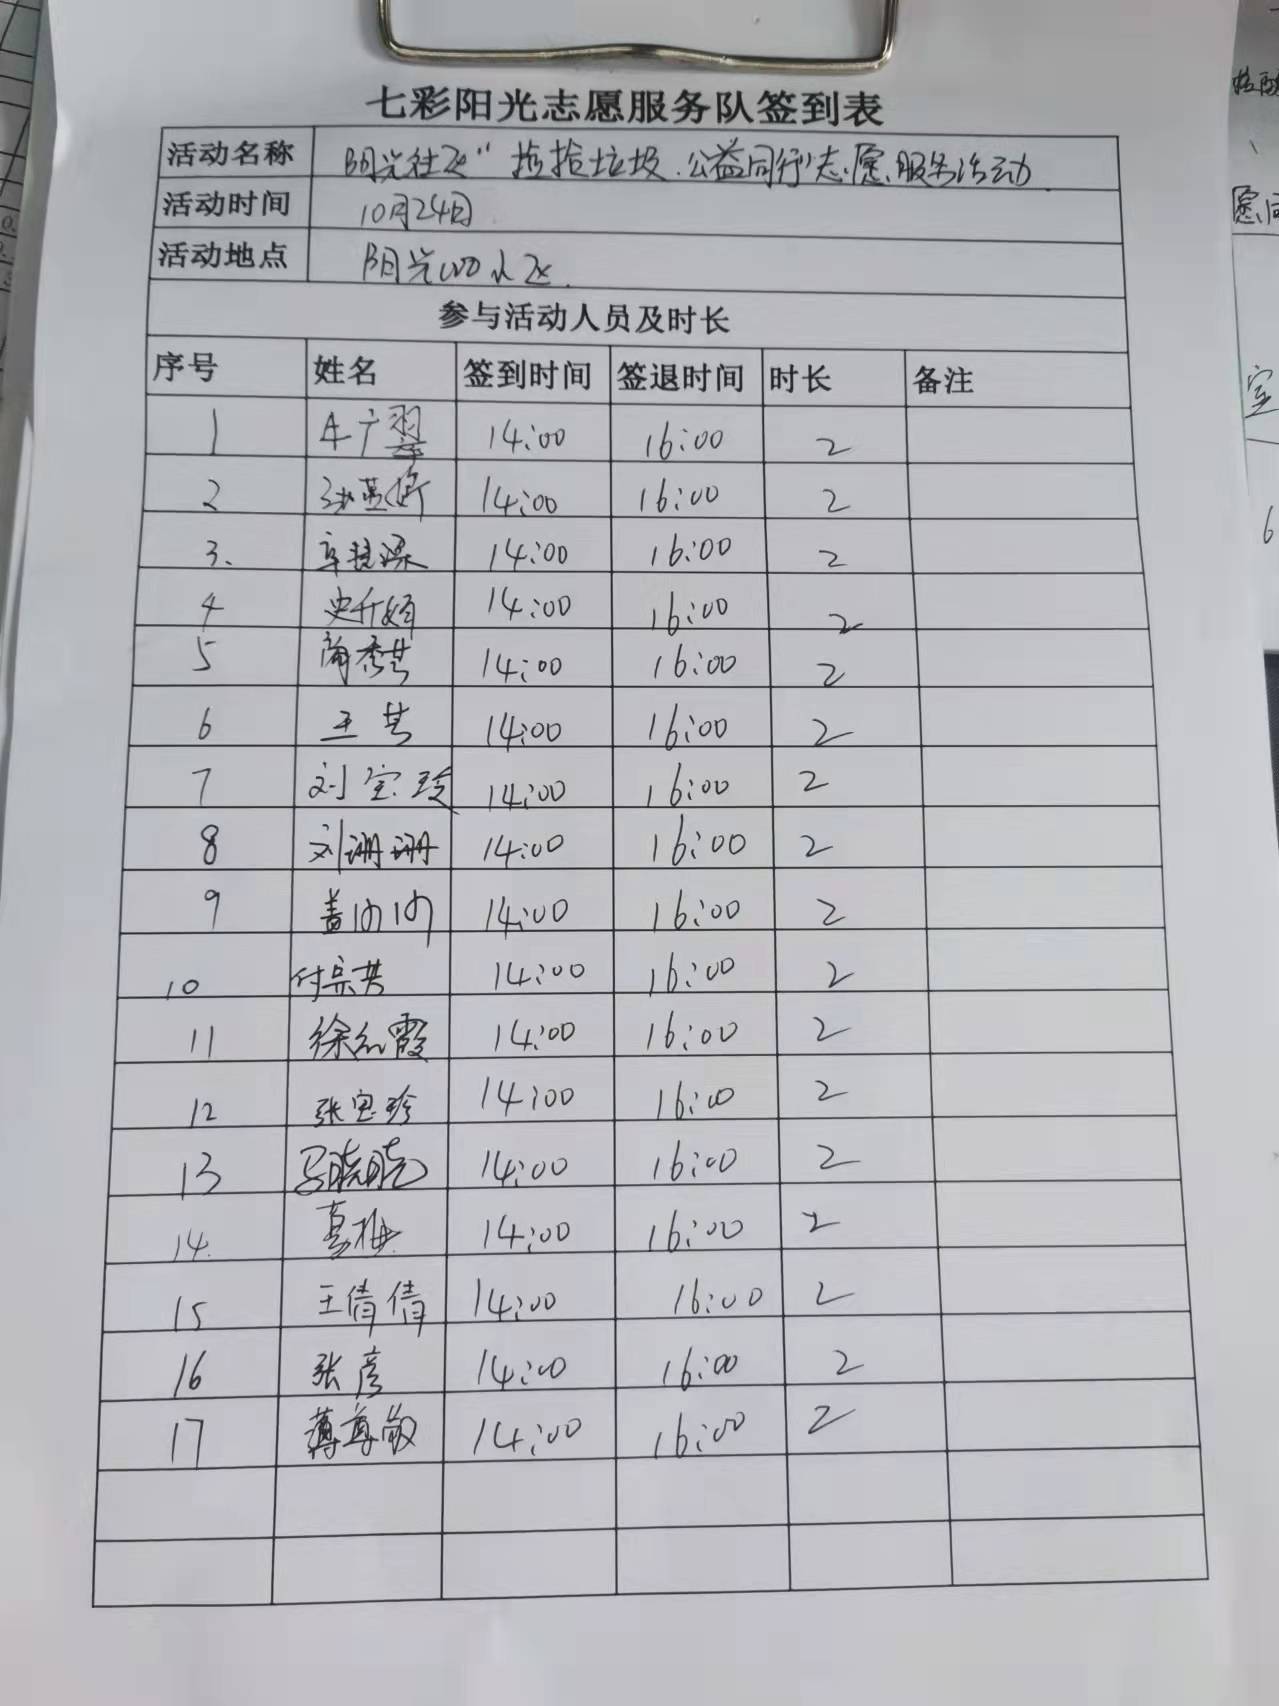 七彩阳光志愿服务队签到表
活动名称 阳光社区"捡拾垃圾.公益同行"志愿服务活动
活动时间 10月24日
活动地点 阳光100小区.
参与活动人员及时长
序号 姓名 签到时间 签退时间 时长 备注
1 14:00 16:00 2
2 14:00 16:00 2
3. 14:00 16:00 2
4 14:00 16:00 2
5 14:00 16:00 2
6 14:00 16:00 2
7 刘宝玲 14:00 16:00 2
8 刘珊珊 14:00 16:00 2
9 14:00 16:00 2
10 14:00 16:00 2
11 徐红霞 14:00 16:00 2
12 张宝珍 14:00 16:00 2
13 马晓晓 14:00 16:00 2
14. 葛梅 14:00 16:00 2
15 王倩倩 14:00 16:00 2
16 张彦 14:00 16:00 2
17 14:00 16:00 2